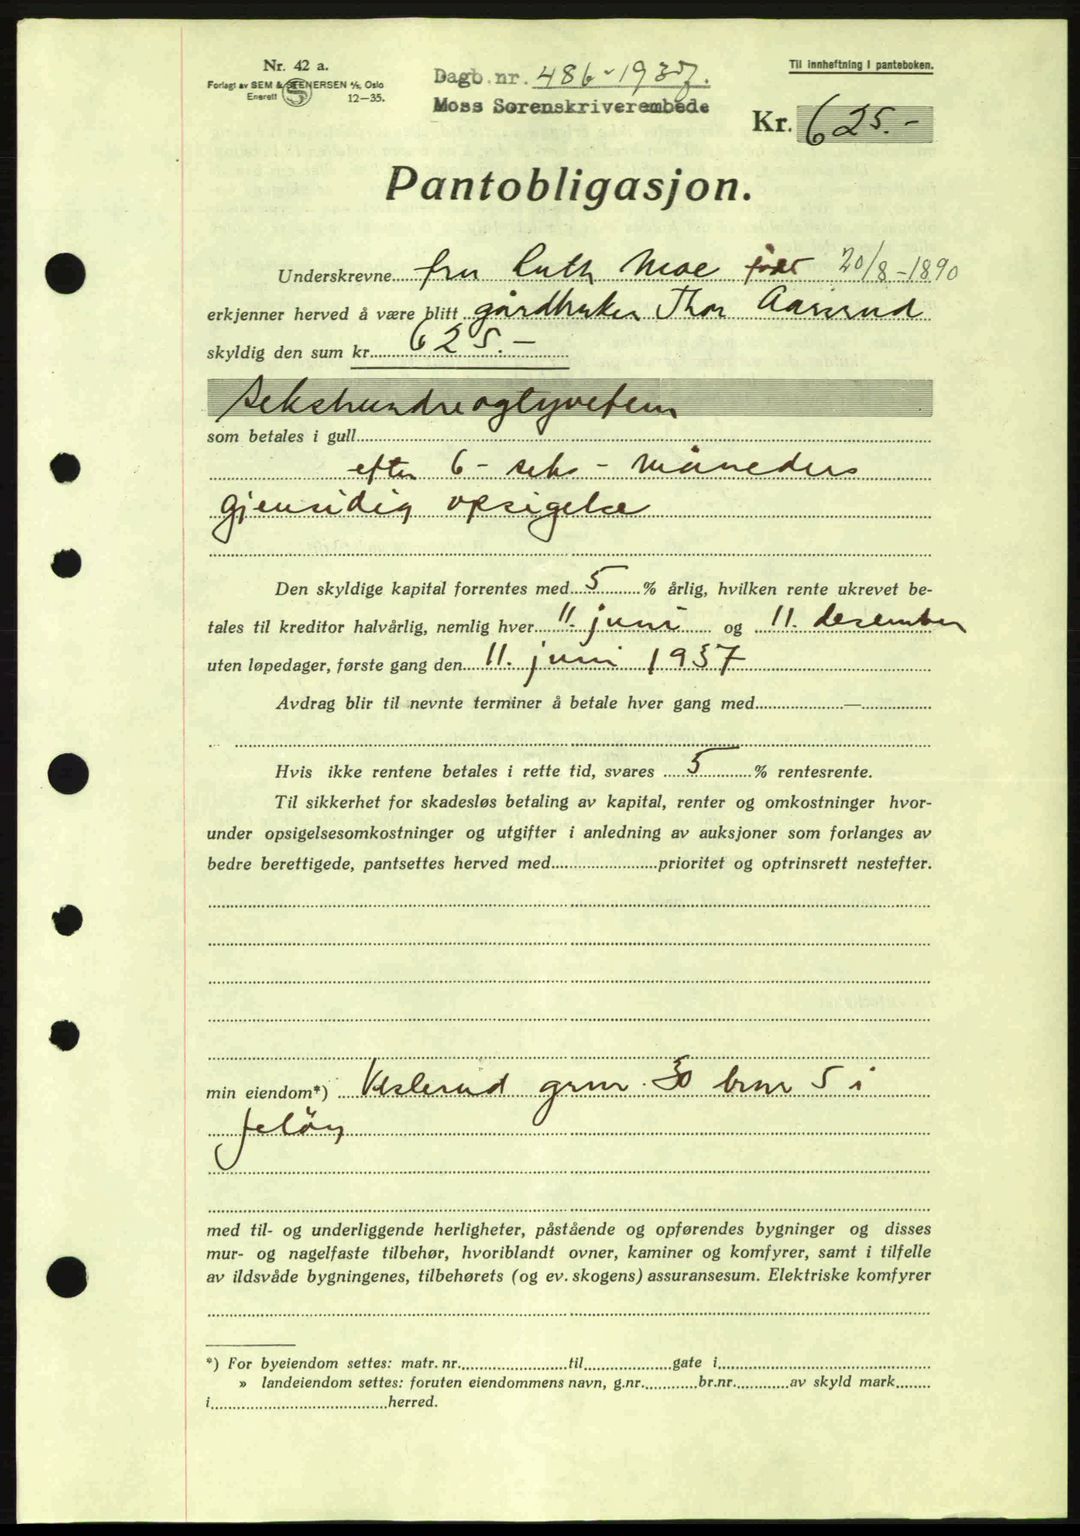 Nr. 42 a.
Forlagt av SEM & STENERSEN A/S, Oslo
Enerett 12-35.
Dagb. nr. 486 - 1937.
Moss Sorenskriverembede
Til innheftning i panteboken.
Kr. 625.-
Pantobligasjon.
Underskrevne fru Ruth Moe født 20/8-1890
erkjenner herved å være blitt gårdbruker Thor Aaserud
skyldig den sum kr. 625.-
sekshundreogtyvefem
som betales i gull
efter 6 - seks - måneders
gjensidig opsigelse
Den skyldige kapital forrentes med 5 % årlig, hvilken rente ukrevet be-
tales til kreditor halvårlig, nemlig hver 11. juni og 11. desember
uten løpedager, første gang den 11. juni 1937
Avdrag blir til nevnte terminer å betale hver gang med —
Hvis ikke rentene betales i rette tid, svares 5 % rentesrente.
Til sikkerhet for skadesløs betaling av kapital, renter og omkostninger hvor-
under opsigelsesomkostninger og utgifter i anledning av auksjoner som forlanges av
bedre berettigede, pantsettes herved med prioritet og optrinsrett nestefter.
min eiendom*) Veslerud grnr. 30 brnr 5 i
Jeløy
med til- og underliggende herligheter, påstående og opførendes bygninger og disses
mur- og nagelfaste tilbehør, hvoriblandt ovner, kaminer og komfyrer, samt i tilfelle
av ildsvåde bygningenes, tilbehørets (og ev. skogens) assuransesum. Elektriske komfyrer
*) For byeiendom settes: matr. nr. til gate i
» landeiendom settes: foruten eiendommens navn, g.nr. br.nr. av skyld mark
i herred.